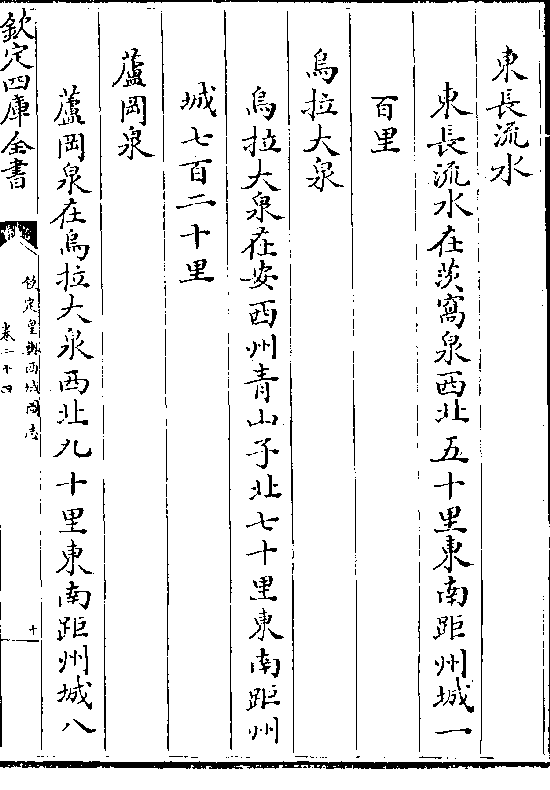 東長流水
東長流水在茨窩泉西北五十里東南距州城一
百里
烏拉大泉
烏拉大泉在安西州青山子北七十里東南距州
城七百二十里
蘆岡泉
蘆岡泉在烏拉大泉西北九十里東南距州城八
欽定四庫全書
欽定皇輿西域圖志
卷二十四
十